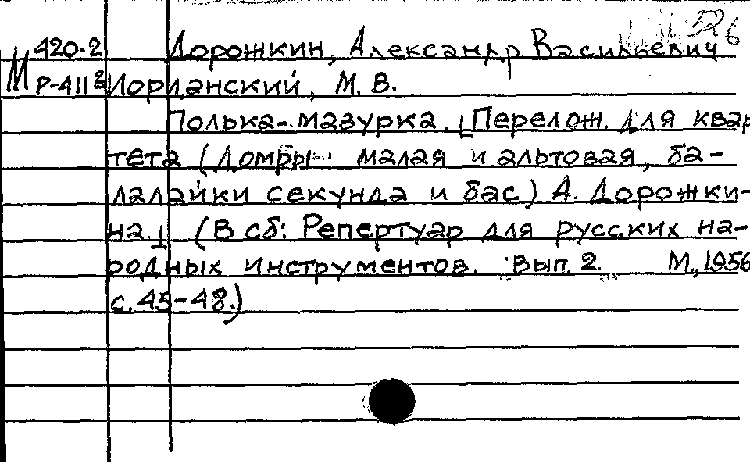 420-2 Дорожкин, Александр Васильевич
М Р-411² Иорданский, М. В.
Полька-мазурка. [Перелож. для квар
тета (домры малая и альтовая, ба-
лалайки секунда и бас) А. Дорожки-
на] (В сб: Репертуар для русских на-
родных инструментов. Вып. 2. М., 1956
с. 45-48.)